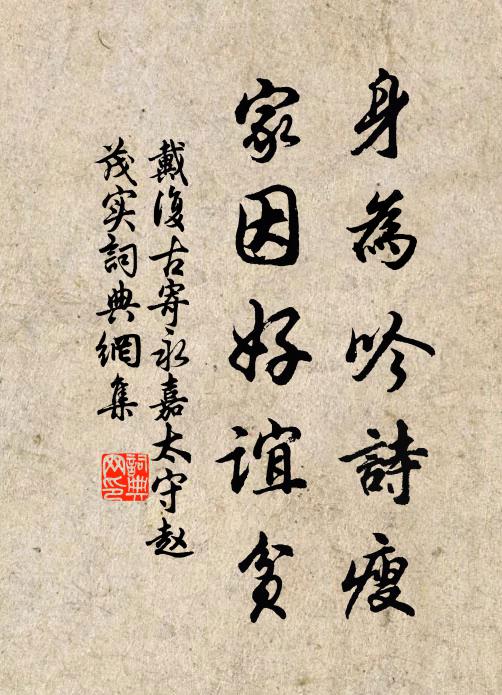 身為吟詩瘦
家因好誼貧
戴復古寄永嘉太守赵
茂实詞典網集
詞典
网印